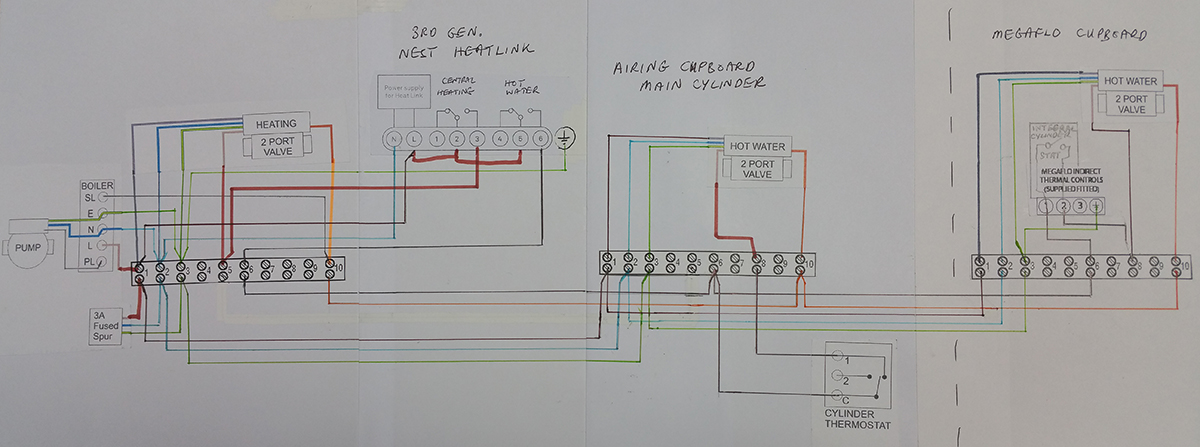 3RD GEN.
NEST HEATLINK
AIRING CUPBOARD
MAIN CYLINDER
MEGAFLO CUPBOARD
Power supply
for Heat Link
CENTRAL
HEATING
HOT
WATER
N L 1 2 3 4 5 6
HEATING
2 PORT
VALVE
HOT WATER
2 PORT
VALVE
HOT WATER
2 PORT
VALVE
INTEGRAL
CYLINDER
STAT
MEGAFLO INDIRECT
THERMAL CONTROLS
(SUPPLIED FITTED)
1 2 3
BOILER
SL
E
N
L
PL
PUMP
1 2 3 4 5 6 7 8 9 10
1 2 3 4 5 6 7 8 9 10
1 2 3 4 5 6 7 8 9 10
3A
Fused
Spur
1
2
C
CYLINDER
THERMOSTAT